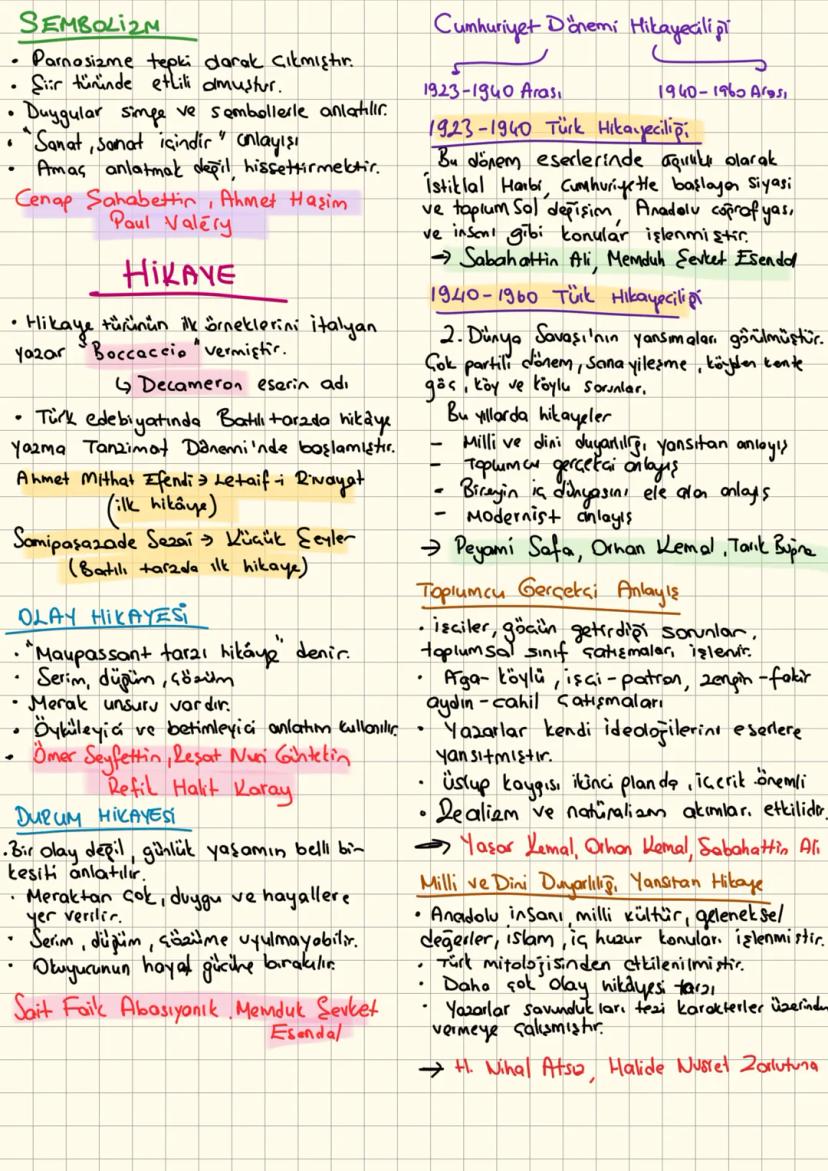 SEMBOLİZM
• Parnasizme tepki olarak çıkmıştır.
• Şiir türünde etkili olmuştur.
• Duygular simge ve sembollerle anlatılır.
• "Sanat, sanat içindir" anlayışı
• Amaç anlatmak değil, hissettirmektir.
Cenap Şahabettin, Ahmet Haşim
Paul Valéry
HİKAYE
• Hikaye türünün ilk örneklerini italyan
yazar "Boccaccio" vermiştir.
↳ Decameron eserin adı
• Türk edebiyatında Batılı tarzda hikâye
yazma Tanzimat Dönemi'nde başlamıştır.
Ahmet Mithat Efendi → Letaif-i Rivayat
(ilk hikâye)
Samipaşazade Sezai → Küçük Şeyler
(Batılı tarzda ilk hikaye)
OLAY HİKAYESİ
• "Maupassant tarzı hikâye" denir.
• Serim, düğüm, çözüm
• Merak unsuru vardır.
• Öyküleyici ve betimleyici anlatım kullanılır.
• Ömer Seyfettin, Reşat Nuri Güntekin
Refik Halit Karay
DURUM HİKAYESİ
• Bir olay değil, günlük yaşamın belli bir
kesiti anlatılır.
• Meraktan çok, duygu ve hayallere
yer verilir.
• Serim, düğüm, çözüme uyulmayabilir.
• Okuyucunun hayal gücüne bırakılır.
Sait Faik Abasıyanık, Memduk Şevket
Esendal
Cumhuriyet Dönemi Hikayeciliği
1923-1940 Arası 1940-1960 Arası
1923-1940 Türk Hikayeciliği
Bu dönem eserlerinde ağırlıklı olarak
İstiklal Harbi, Cumhuriyetle başlayan siyasi
ve toplumsal değişim, Anadolu coğrafyası,
ve insanı gibi konular işlenmiştir.
→ Sabahattin Ali, Memduh Şevket Esendal
1940-1960 Türk Hikayeciliği
2. Dünya Savaşı'nın yansımaları görülmüştür.
Çok partili dönem, sanayileşme, köyden kente
göç, köy ve köylü sorunları.
Bu yıllarda hikayeler
- Milli ve dini duyarlılığı yansıtan anlayış
- Toplumcu gerçekçi anlayış
- Bireyin iç dünyasını ele alan anlayış
- Modernist anlayış
→ Peyami Safa, Orhan Kemal, Tarık Buğra
Toplumcu Gerçekçi Anlayış
• işçiler, göçün getirdiği sorunlar,
toplumsal sınıf çatışmaları işlenir.
• Ağa-köylü, işçi-patron, zengin-fakir
aydın-cahil çatışmaları
• Yazarlar kendi ideolojilerini eserlere
yansıtmıştır.
• Üslup kaygısı ikinci planda, içerik önemli
• Realizm ve natüralizm akımları etkilidir.
→ Yaşar Kemal, Orhan Kemal, Sabahattin Ali
Milli ve Dini Duyarlılığı Yansıtan Hikaye
• Anadolu insanı, milli kültür, geleneksel
değerler, islam, iç huzur konuları işlenmiştir.
• Türk mitolojisinden etkilenilmiştir.
• Daha çok olay hikâyesi tarzı
• Yazarlar savundukları tezi karakterler üzerinden
vermeye çalışmıştır.
→ H. Nihal Atsız, Halide Nusret Zorlutuna